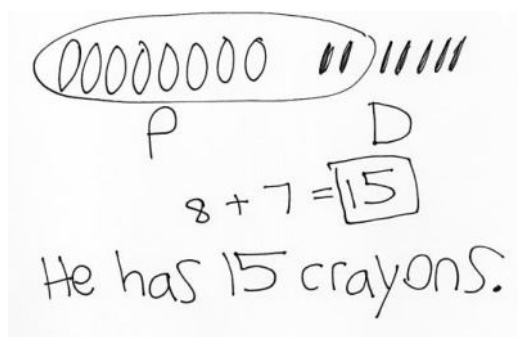 P D
8 + 7 = 15
He has 15 crayons.